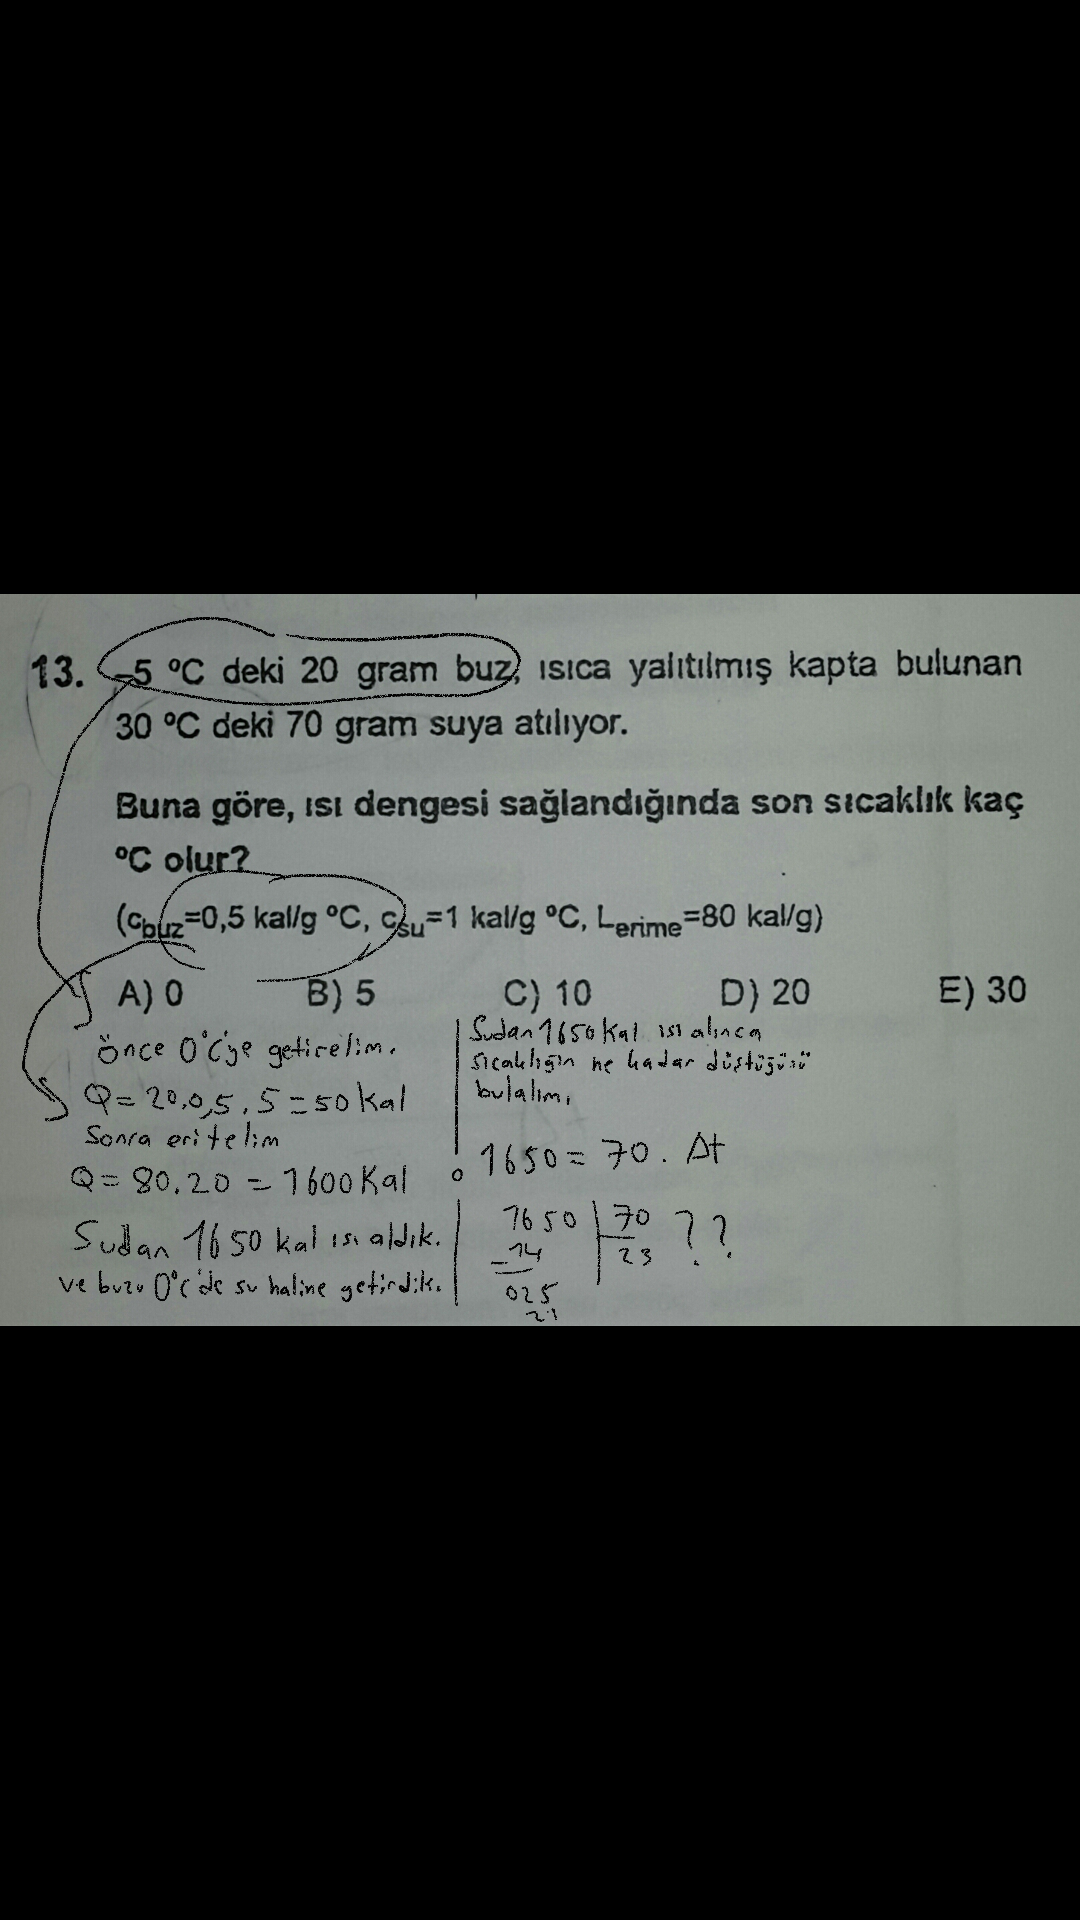 13. -5 °C deki 20 gram buz, ısıca yalıtılmış kapta bulunan
30 °C deki 70 gram suya atılıyor.
Buna göre, ısı dengesi sağlandığında son sıcaklık kaç
°C olur?
(cbuz=0,5 kal/g °C, csu=1 kal/g °C, Lerime=80 kal/g)
A) 0 B) 5 C) 10 D) 20 E) 30
önce 0°C'ye getirelim.
Q = 20.0,5.5 = 50 kal
Sonra eritelim
Q = 80.20 = 1600 Kal
Sudan 1650 kal ısı aldık.
ve buzu 0°C'de su haline getirdik.
Sudan 1650 Kal ısı alınca
sıcaklığın ne kadar düştüğünü
bulalım.
1650 = 70. Δt
1650 70 ??
-14 23
025
21